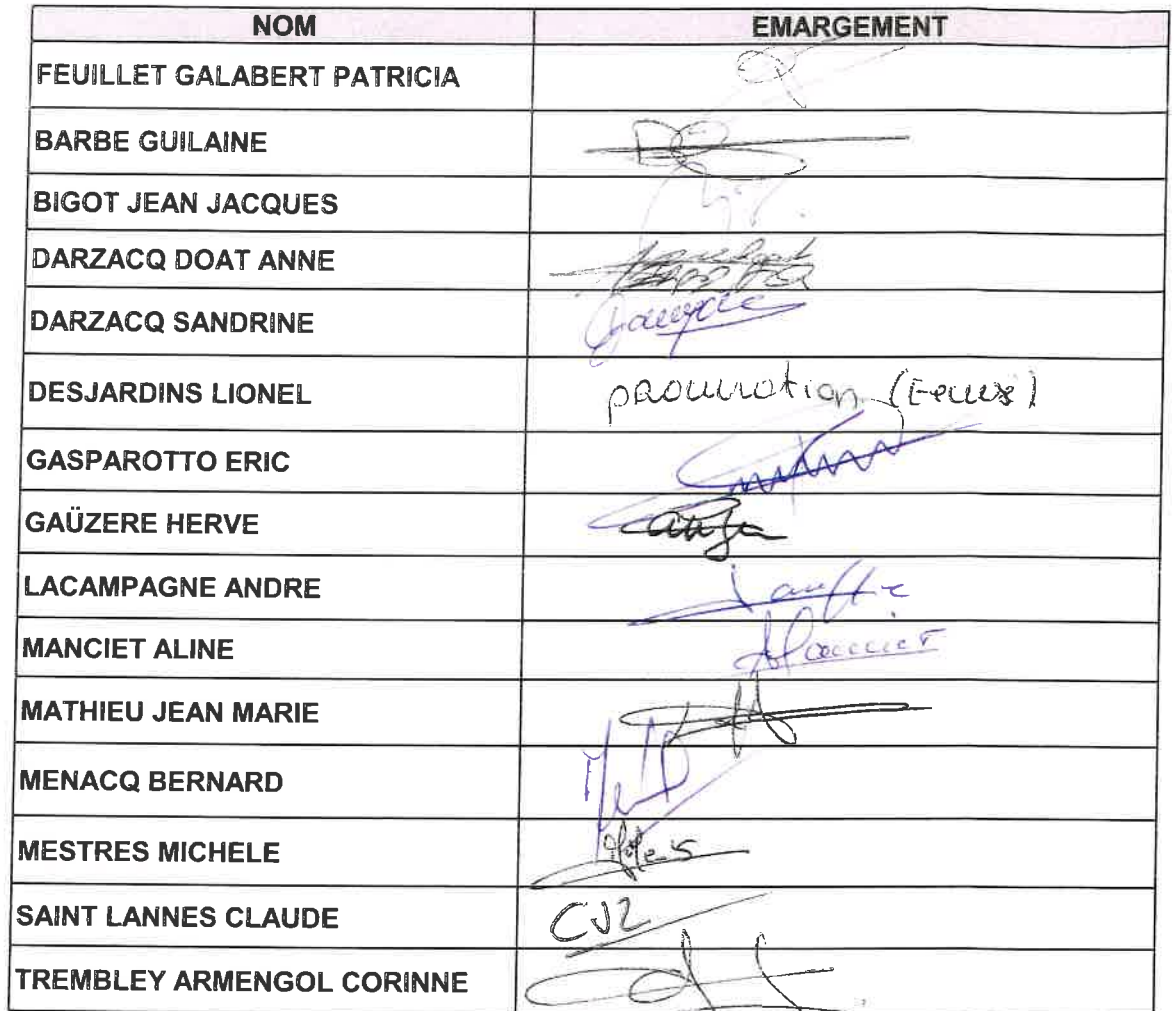 NOM EMARGEMENT
FEUILLET GALABERT PATRICIA
BARBE GUILAINE
BIGOT JEAN JACQUES
DARZACQ DOAT ANNE
DARZACQ SANDRINE
DESJARDINS LIONEL
GASPAROTTO ERIC
GAÜZERE HERVE
LACAMPAGNE ANDRE
MANCIET ALINE
MATHIEU JEAN MARIE
MENACQ BERNARD
MESTRES MICHELE
SAINT LANNES CLAUDE
TREMBLEY ARMENGOL CORINNE